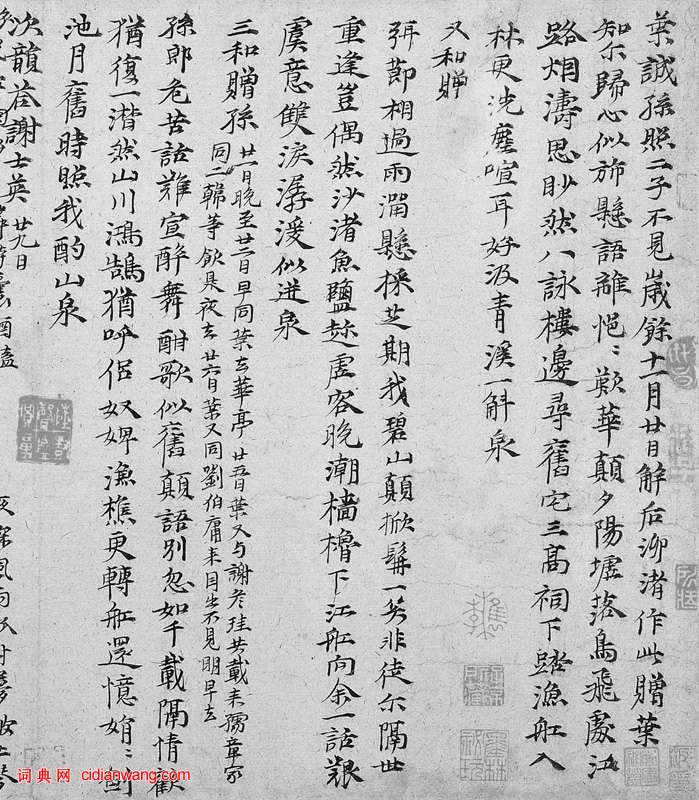 葉誠孫照二子不見歲餘十一月廿日解后泖渚作此贈葉
知尒歸心似旆懸語離悒〻歎華顛夕陽墟落鳥飛處江
路烟濤思眇然八詠樓邊尋舊宅三高祠下踏漁舡入
林更洗塵喧耳好汲青溪一斛泉
又和贈
弭節過雨澗懸採芝期我碧山顛掀髯一笑非徒尒隔世
重逢豈偶然沙渚魚鹽趂虛客晚潮檣櫓下江舡向余一話艱
虞意雙淚潺湲似迸泉
三和贈孫
廿一日晚至廿二日早同葉去華亭廿五日葉又与謝彥珪共載来孺章家
同二韓等飲是夜去廿六日葉又同劉伯庸来不見明早去
孫郎危苦話難宣醉舞酣歌似舊顛語別忽如千載隔情歡
猶復一潸然山川鴻鵠猶呼侶奴婢漁樵更轉舡還憶娟〻
池月舊時照我酌山泉
次韻荅謝士英 廿九日
词典网 cidianwang.com